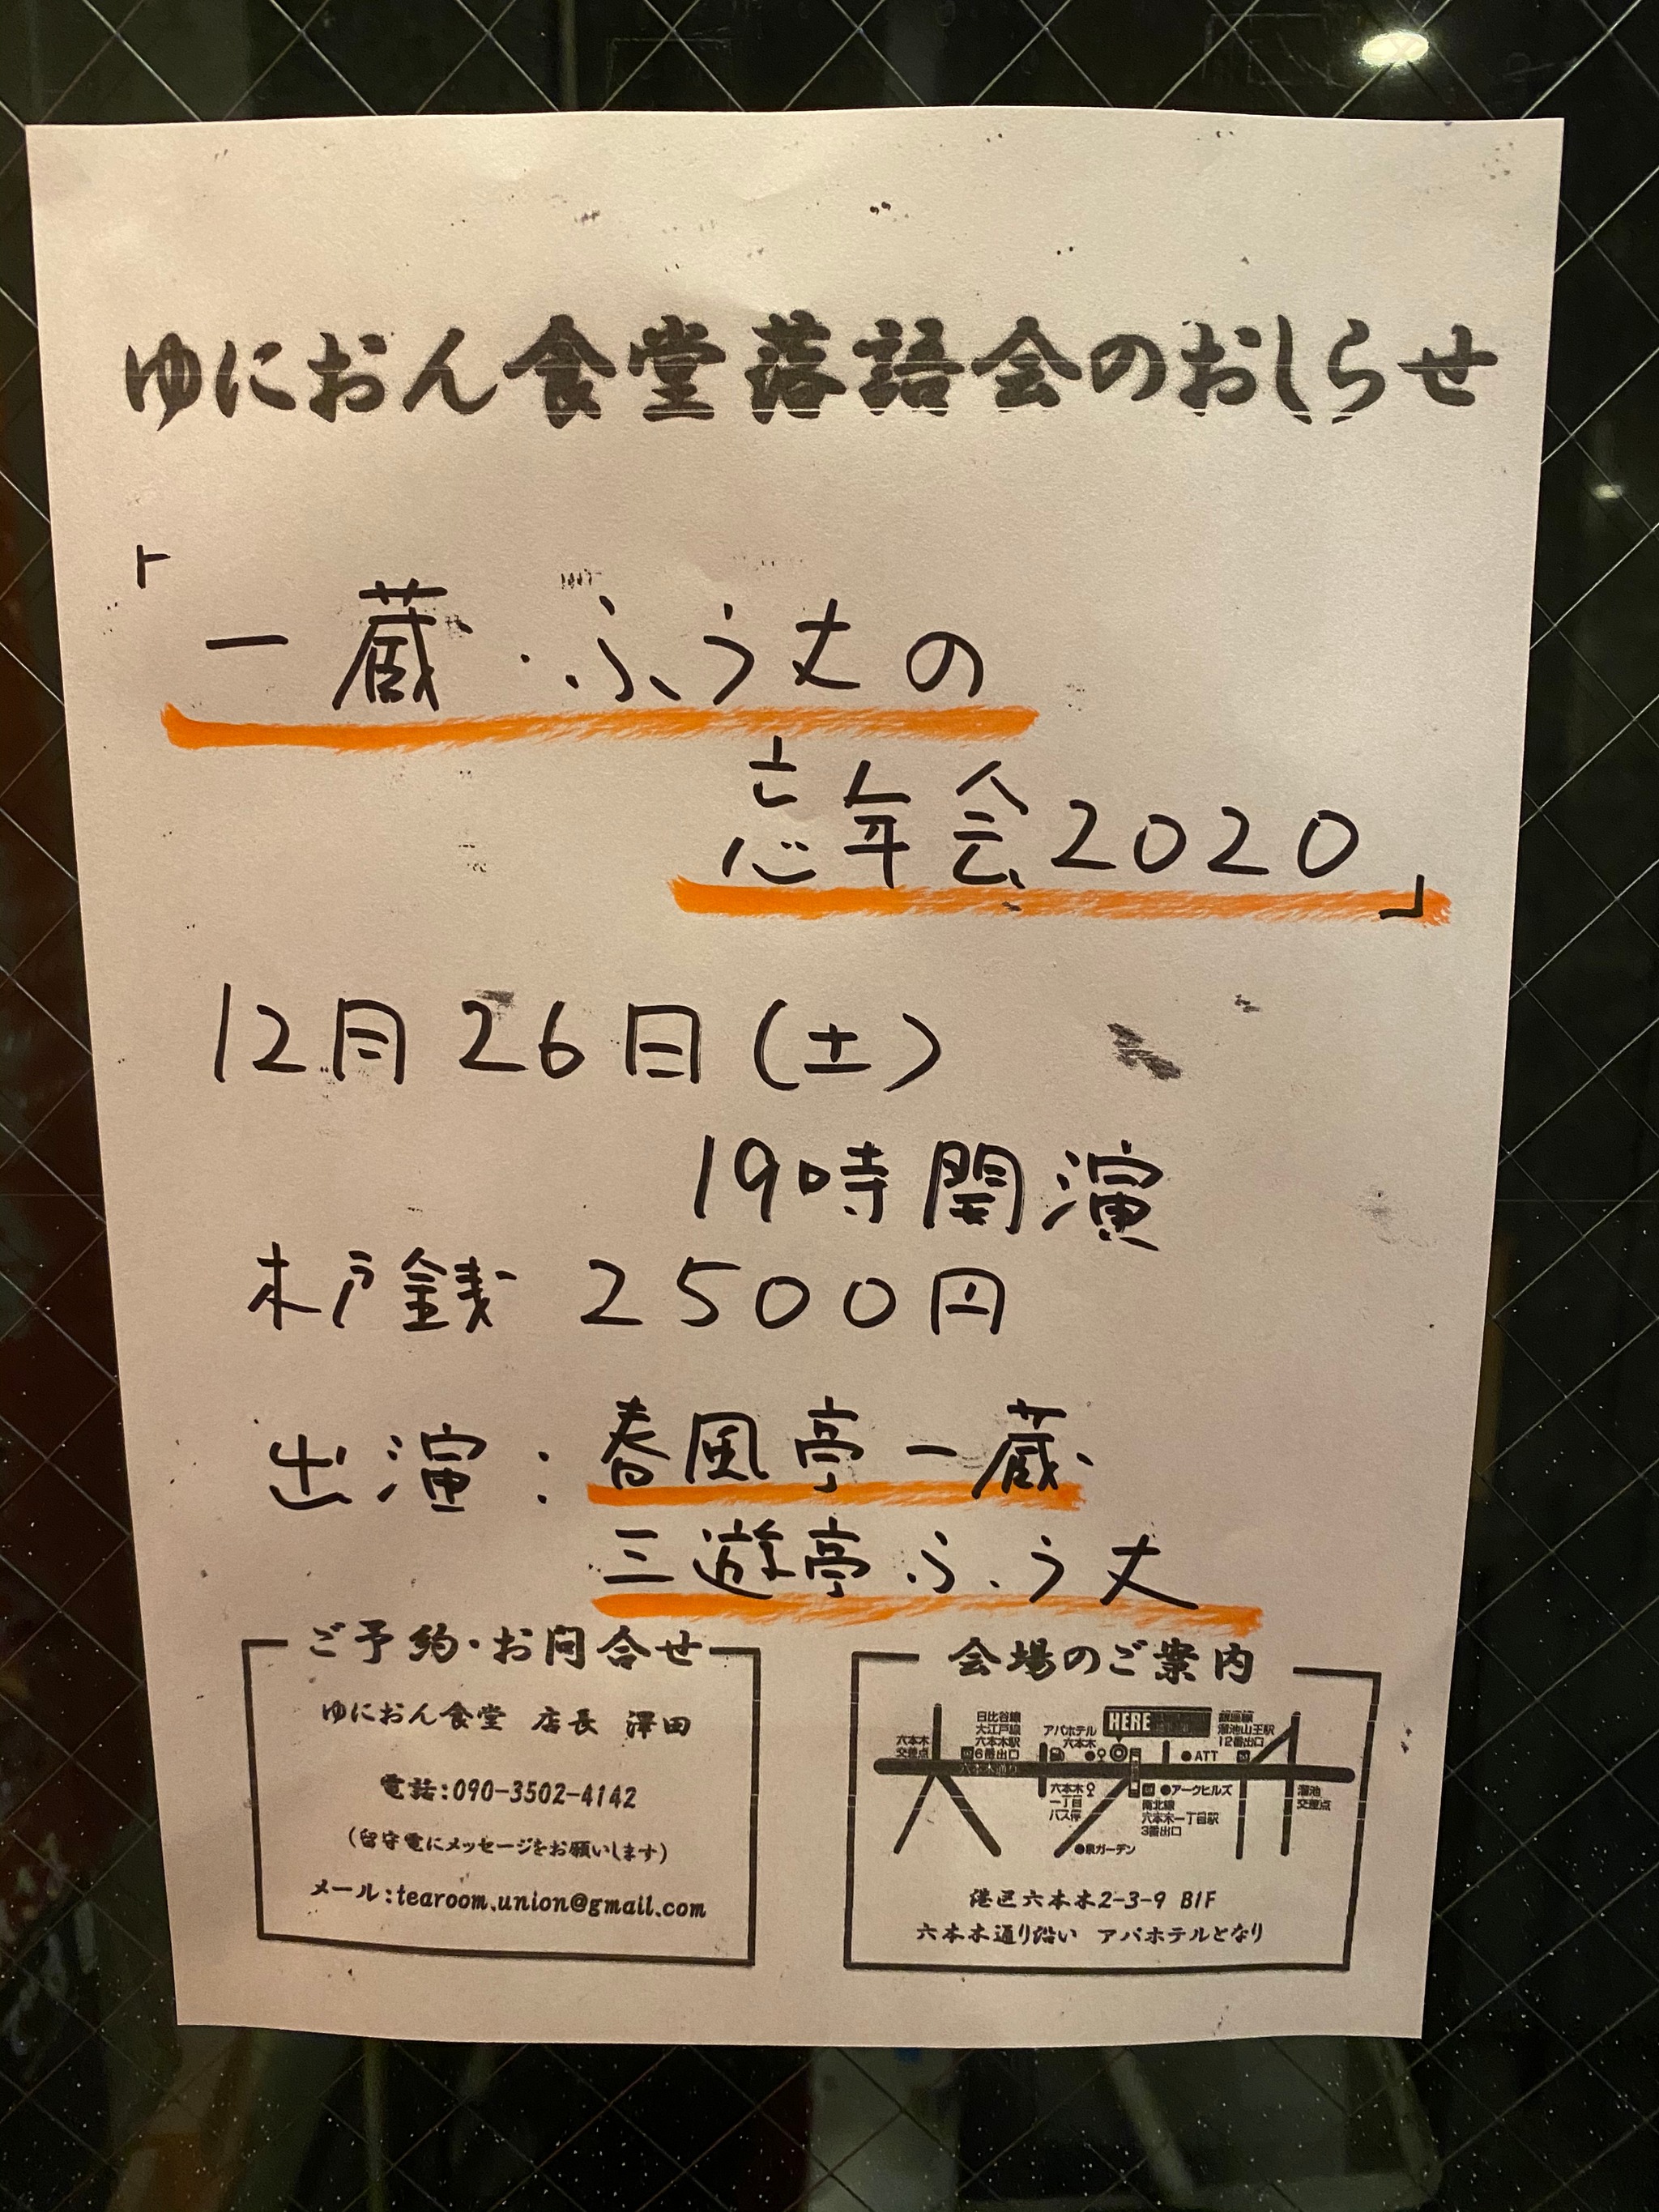 ゆにおん食堂落語会のおしらせ
「一蔵・ふう丈の
忘年会2020」
12月26日(土)
19時開演
木戸銭 2500円
出演:春風亭一蔵
三遊亭ふう丈
ご予約・お問合せ
ゆにおん食堂 店長 澤田
電話:090-3502-4142
(留守電にメッセージをお願いします)
メール:tearoom.union@gmail.com
会場のご案内
六本木
交差点
日比谷線
大江戸線
六本木駅
6番出口
六本木通り
アパホテル
六本木
HERE
銀座線
溜池山王駅
12番出口
ATT
六本木
一丁目
バス停
アークヒルズ
南北線
六本木一丁目駅
3番出口
溜池
交差点
泉ガーデン
港区六本木2-3-9 B1F
六本木通り沿い アパホテルとなり